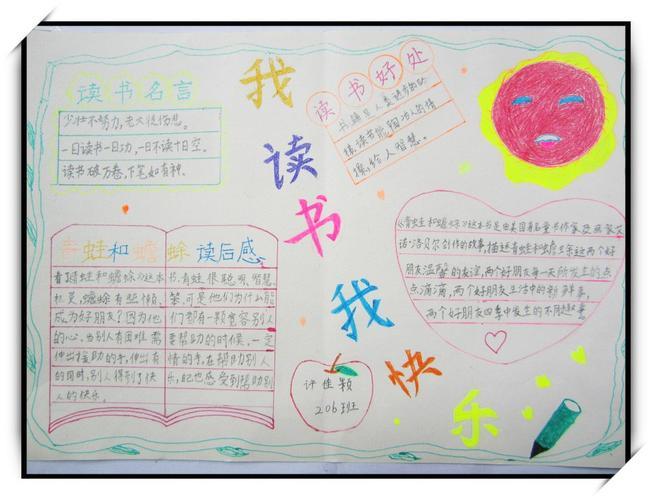 读书名言
少壮不努力,老大徒伤悲。
一日读书一日功,一日不读十日空。
读书破万卷,下笔如有神。
我读书我快乐
读书好处
书籍是人类进步的阶
梯,读书能陶冶人的情
操,给人智慧。
青蛙和蟾蜍读后感
青蛙和蟾蜍》这本书,青蛙很聪明、智慧
蟾蜍有些懒,可是他们为什么能
成为好朋友?因为他们都有一颗宽容别人
的心,当别人有困难需要帮助的时候,一定
伸出援助的手,伸出有情的手,在帮助别人
的同时,别人得到了快乐,自己也感受到帮助别
人的快乐。
《青蛙和蟾蜍》这本书是由美国著名童书作家及画家艾
诺·洛贝尔创作的故事,描述青蛙和蟾蜍这两个好
朋友温馨的友谊,两个好朋友每一天所发生的点
点滴滴,两个好朋友生活中的新鲜事,
两个好朋友四季中发生的不同趣事。
许佳颖
206班